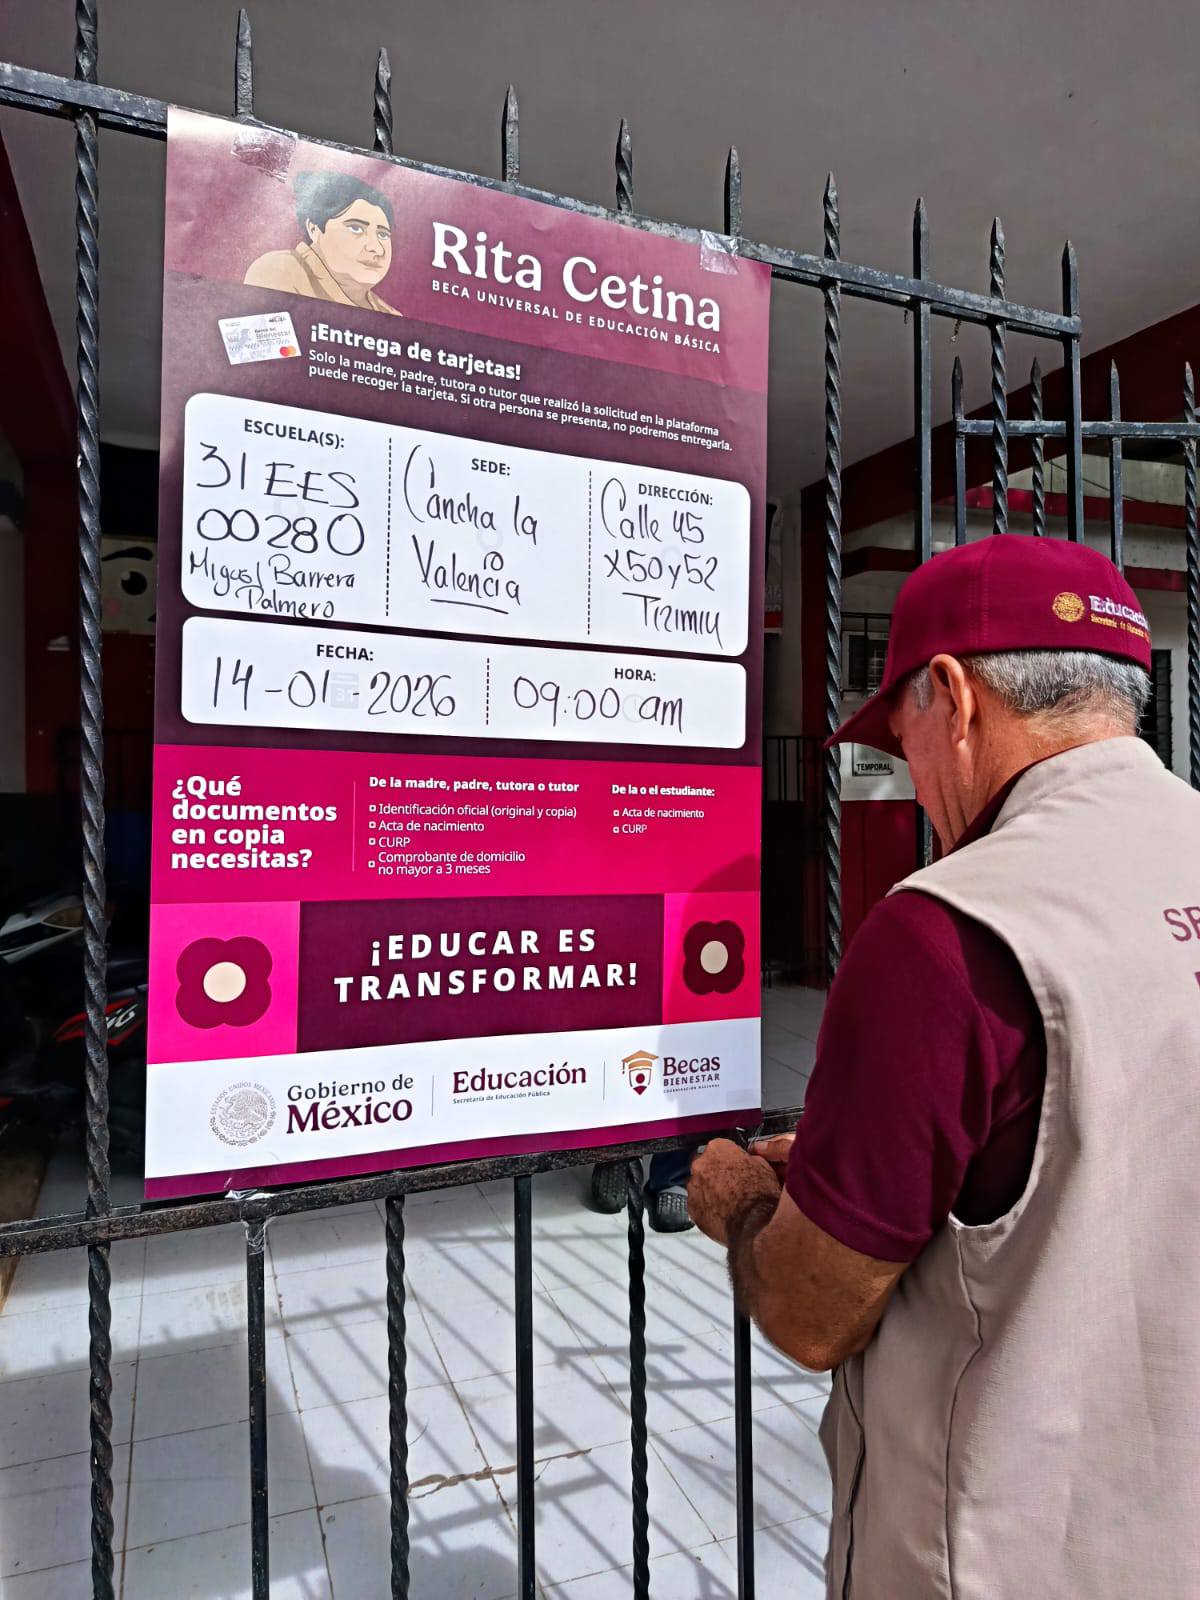 Rita Cetina
BECA UNIVERSAL DE EDUCACIÓN BÁSICA
¡Entrega de tarjetas!
Solo la madre, padre, tutora o tutor que realizó la solicitud en la plataforma
puede recoger la tarjeta. Si otra persona se presenta, no podremos entregarla.
ESCUELA(S):
31 EES
00280
Miguel Barrera
Palmero
SEDE:
Cancha la
Valencia
DIRECCIÓN:
Calle 45
x50 y 52
Tizimin
FECHA:
14-01-2026
HORA:
09:00 am
¿Qué
documentos
en copia
necesitas?
De la madre, padre, tutora o tutor
Identificación oficial (original y copia)
Acta de nacimiento
CURP
Comprobante de domicilio
no mayor a 3 meses
De la o el estudiante:
Acta de nacimiento
CURP
¡EDUCAR ES
TRANSFORMAR!
Gobierno de
México
Educación
Secretaría de Educación Pública
Becas
BIENESTAR
COORDINACIÓN NACIONAL
TEMPORAL